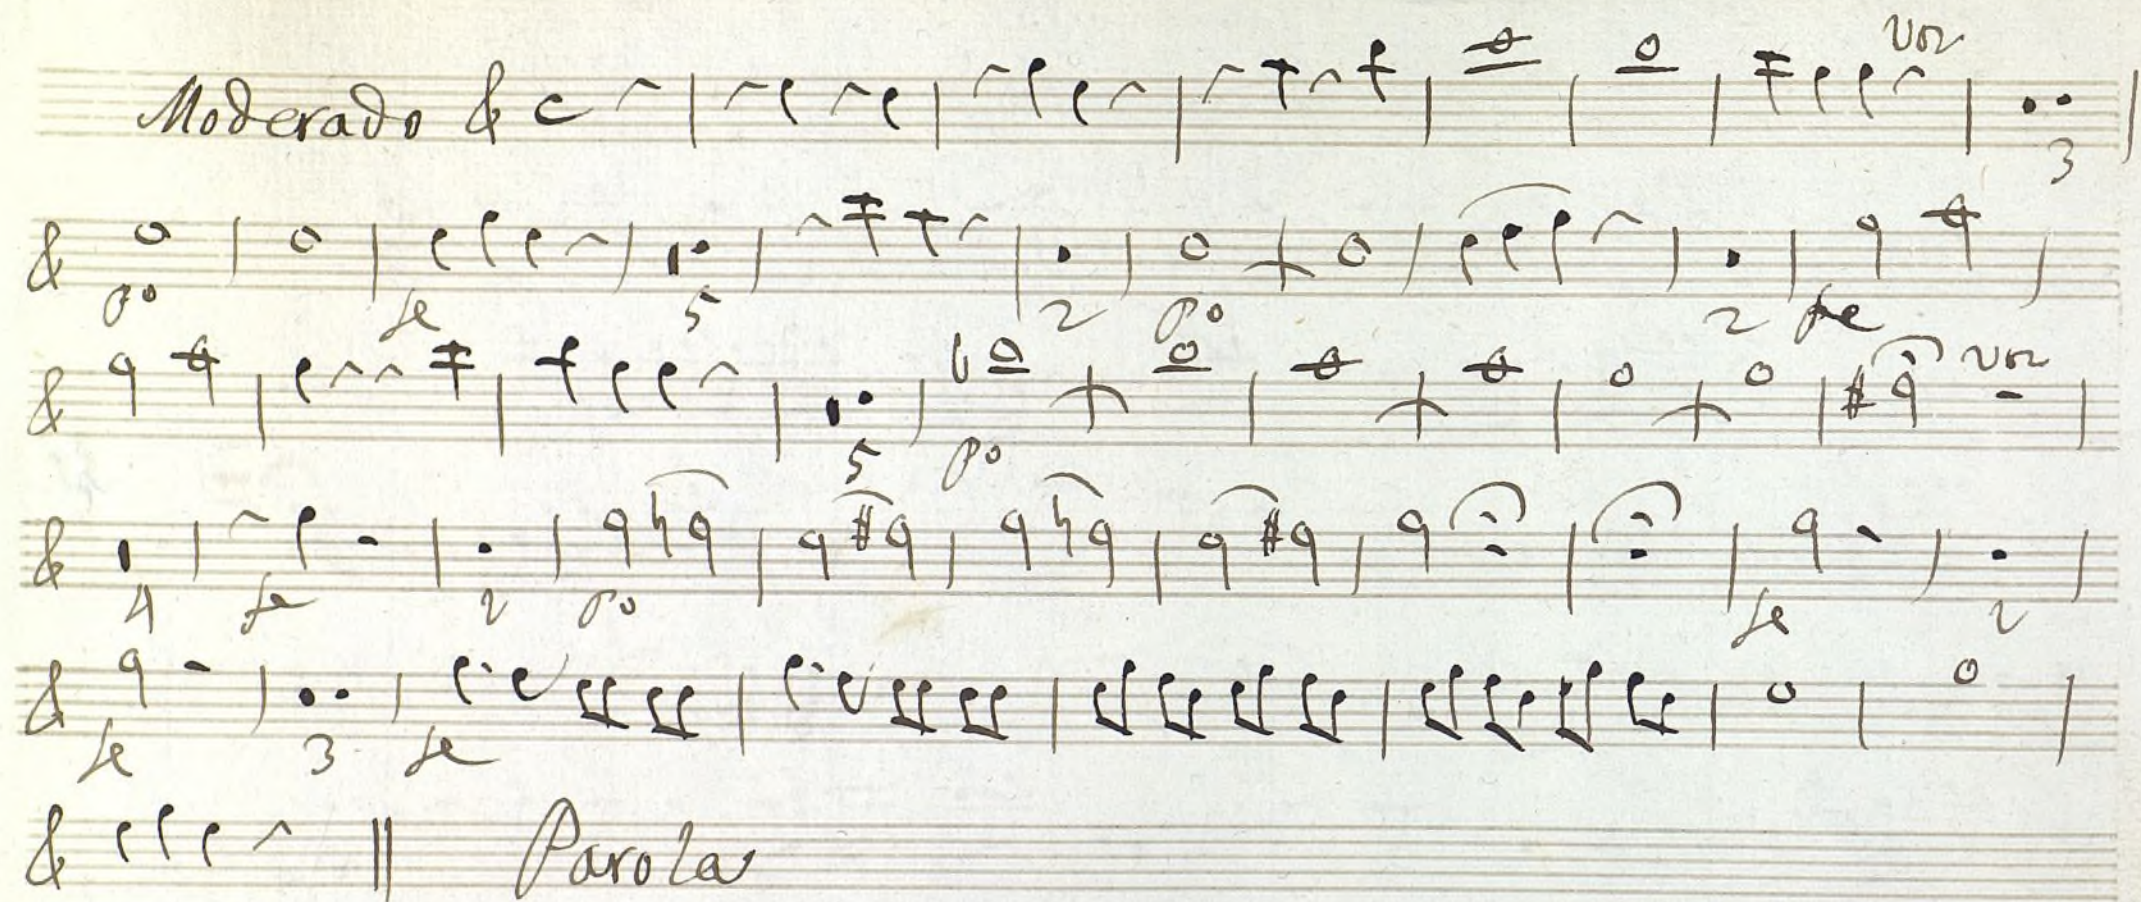 Moderado c voz
3
po fe 5 2 po 2 fe
voz
5 po
4 fe 2 po fe 2
fe 3 fe
Parola